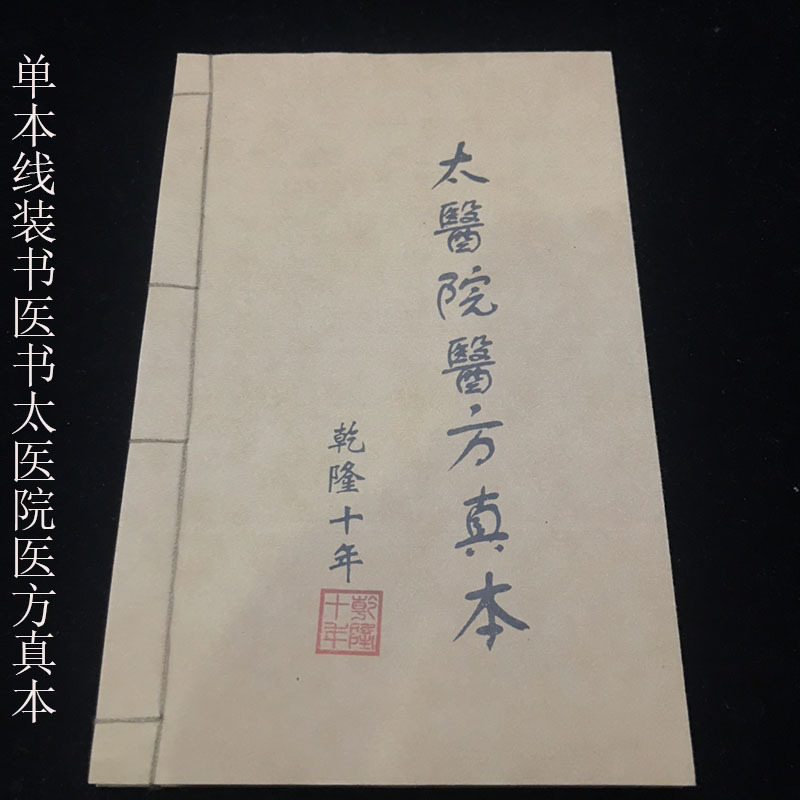 单本线装书医书太医院医方真本
太醫院醫方真本
乾隆十年
乾隆
十年